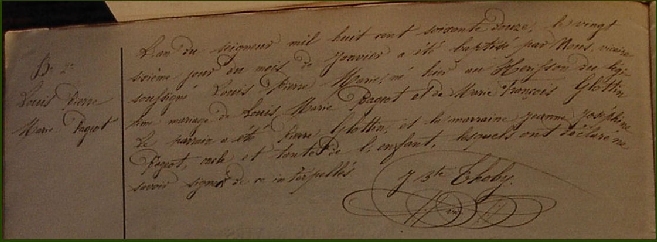 B. 2
Louis Pierre
Marie Pageot
L'an du seigneur mil huit cent soixante douze, le vingt
sixième jour du mois de janvier a été baptisé par Nous, vicaire
soussigné Louis Pierre Marie, né hier au
du mariage de Louis Marie Pageot et de Marie Françoise Glottin
Le parrain a été Pierre Glottin, et la marraine Jeanne Joséphine
Pageot, oncle et tante de l'enfant, lesquels ont déclaré ne
savoir signer de ce interpellés
J. Bte Thoby